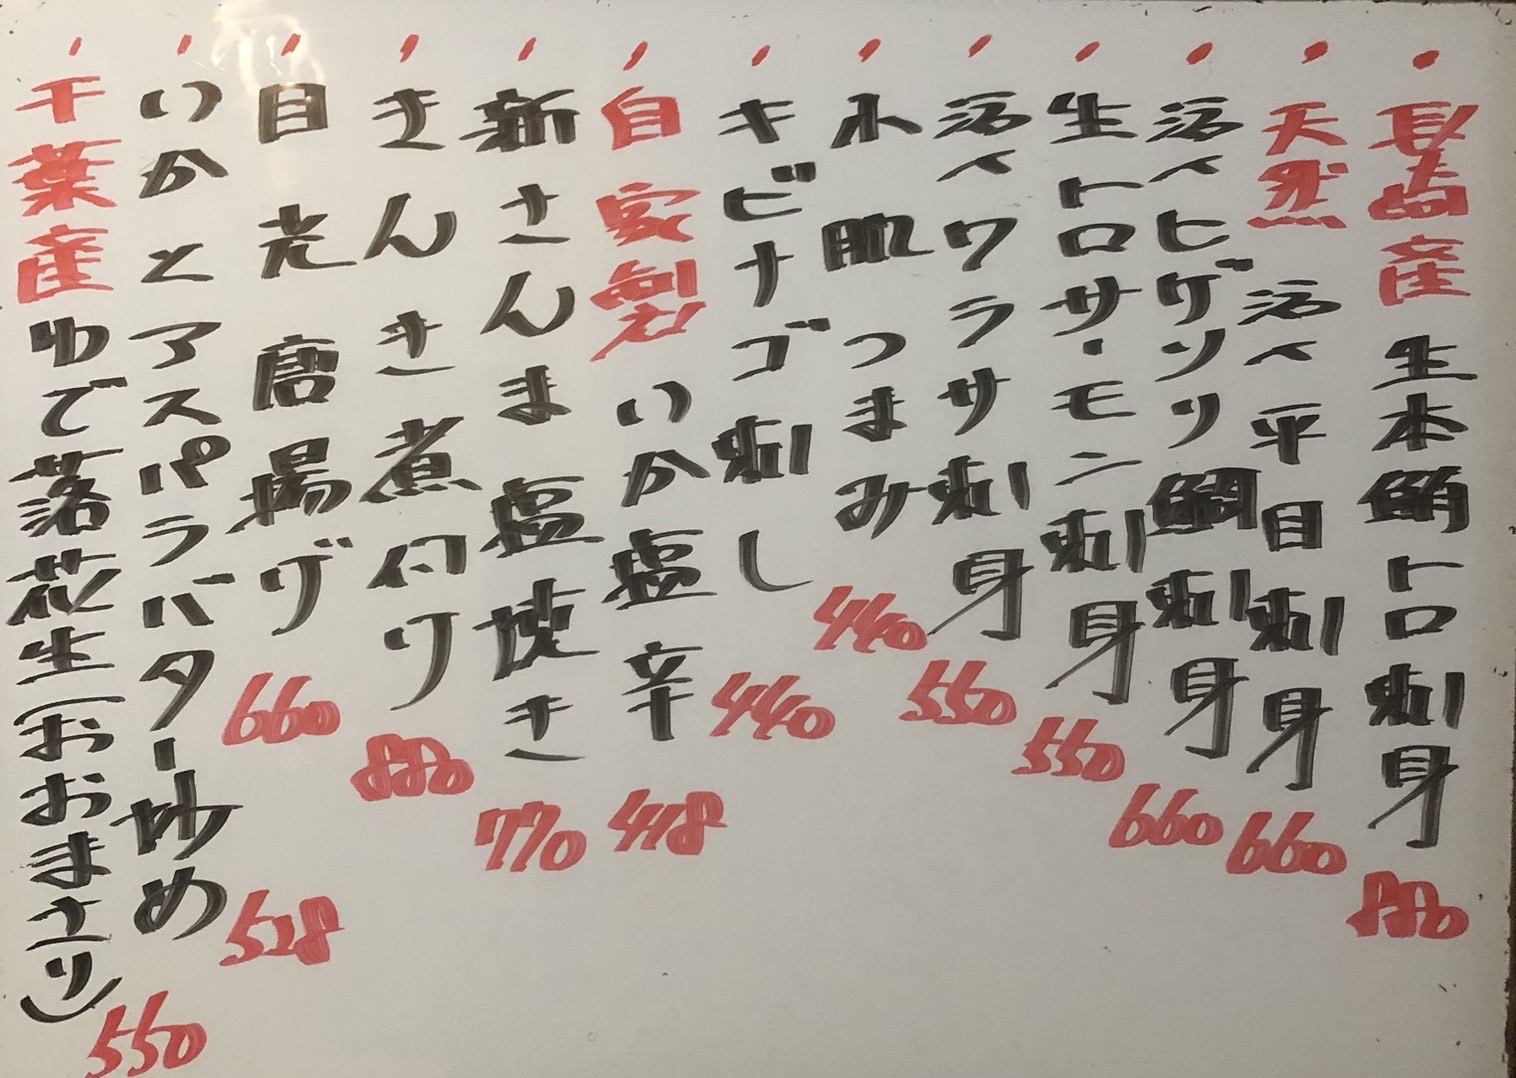 長崎産 生本鮪トロ刺身 880
天然 活〆平目刺身 660
活〆ヒゲソリ鯛刺身 660
生トロサーモン刺身 550
活〆ワラサ刺身 550
水肌つまみ 440
キビナゴ刺し 440
自家製 いか塩辛 418
新さんま塩焼き 770
きんき煮付け 880
目光唐揚げ 660
いかとアスパラバター炒め 528
千葉産 ゆで落花生(おおまさり) 550